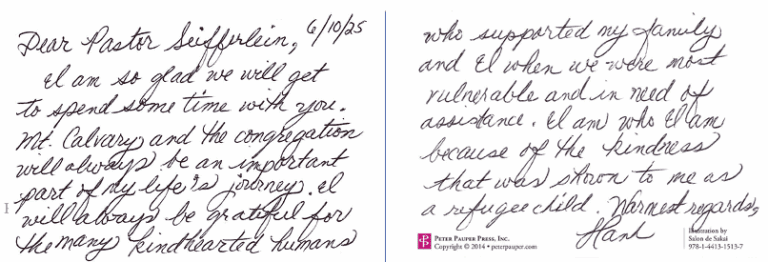 6/10/25
Dear Pastor Seifferlein,
I am so glad we will get
to spend some time with you.
Mt. Calvary and the congregation
will always be an important
part of my life's journey. I
will always be grateful for
the many kindhearted humans
who supported my family
and I when we were most
vulnerable and in need of
assistance. I am who I am
because of the kindness
that was shown to me as
a refugee child. Warmest regards,
Hanh
PETER PAUPER PRESS, INC.
Copyright © 2014 • peterpauper.com
Illustration by
Salon de Sakai
978-1-4413-1513-7